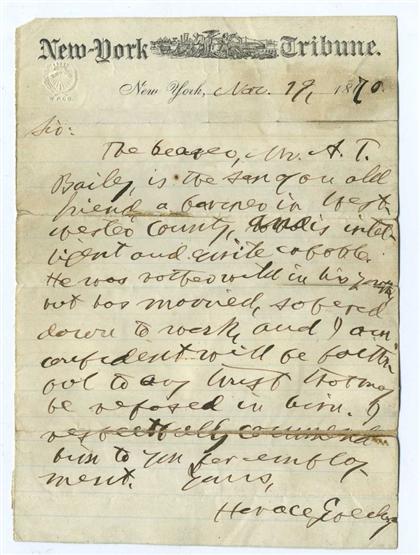 New-York Tribune.
New York, Nov. 19, 1870.
Sir:
The bearer, Mr. A. T.
Bailey, is the son of an old
friend, a farmer in West-
chester County, and is intel-
ligent and quite capable.
He was rather wild in his youth,
but has married, sobered
down to work, and I am
confident will be faith-
ful to any trust that may
be reposed in him. I
respectfully commend
him to you for employ-
ment. Yours,
Horace Greeley